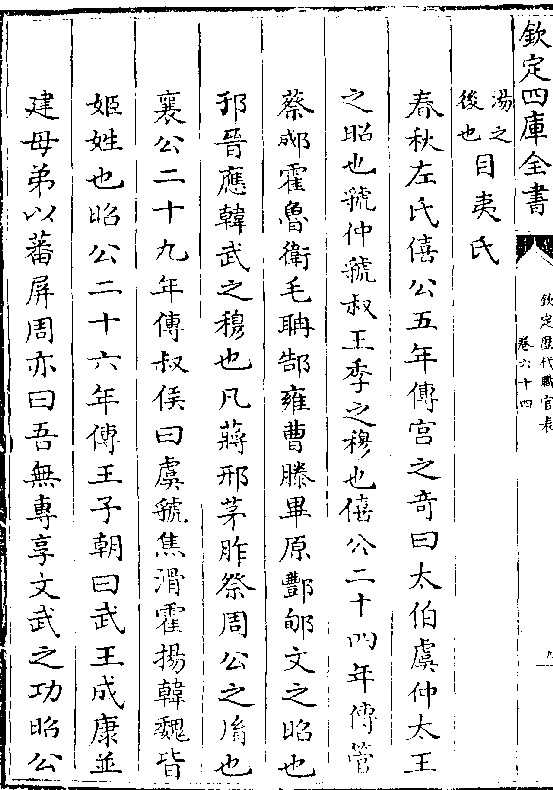 欽定四庫全書
欽定歷代職官表
卷六十四
九
湯之
後也
目夷氏
春秋左氏僖公五年傳宮之奇曰太伯虞仲太王
之昭也虢仲虢叔王季之穆也僖公二十四年傳管
蔡郕霍魯衛毛聃郜雍曹滕畢原酆郇文之昭也
邘晉應韓武之穆也凡蔣邢茅胙祭周公之𦙍也
襄公二十九年傳叔侯曰虞虢焦滑霍揚韓魏皆
姬姓也昭公二十六年傳王子朝曰武王成康並
建母弟以蕃屏周亦曰吾無專享文武之功昭公